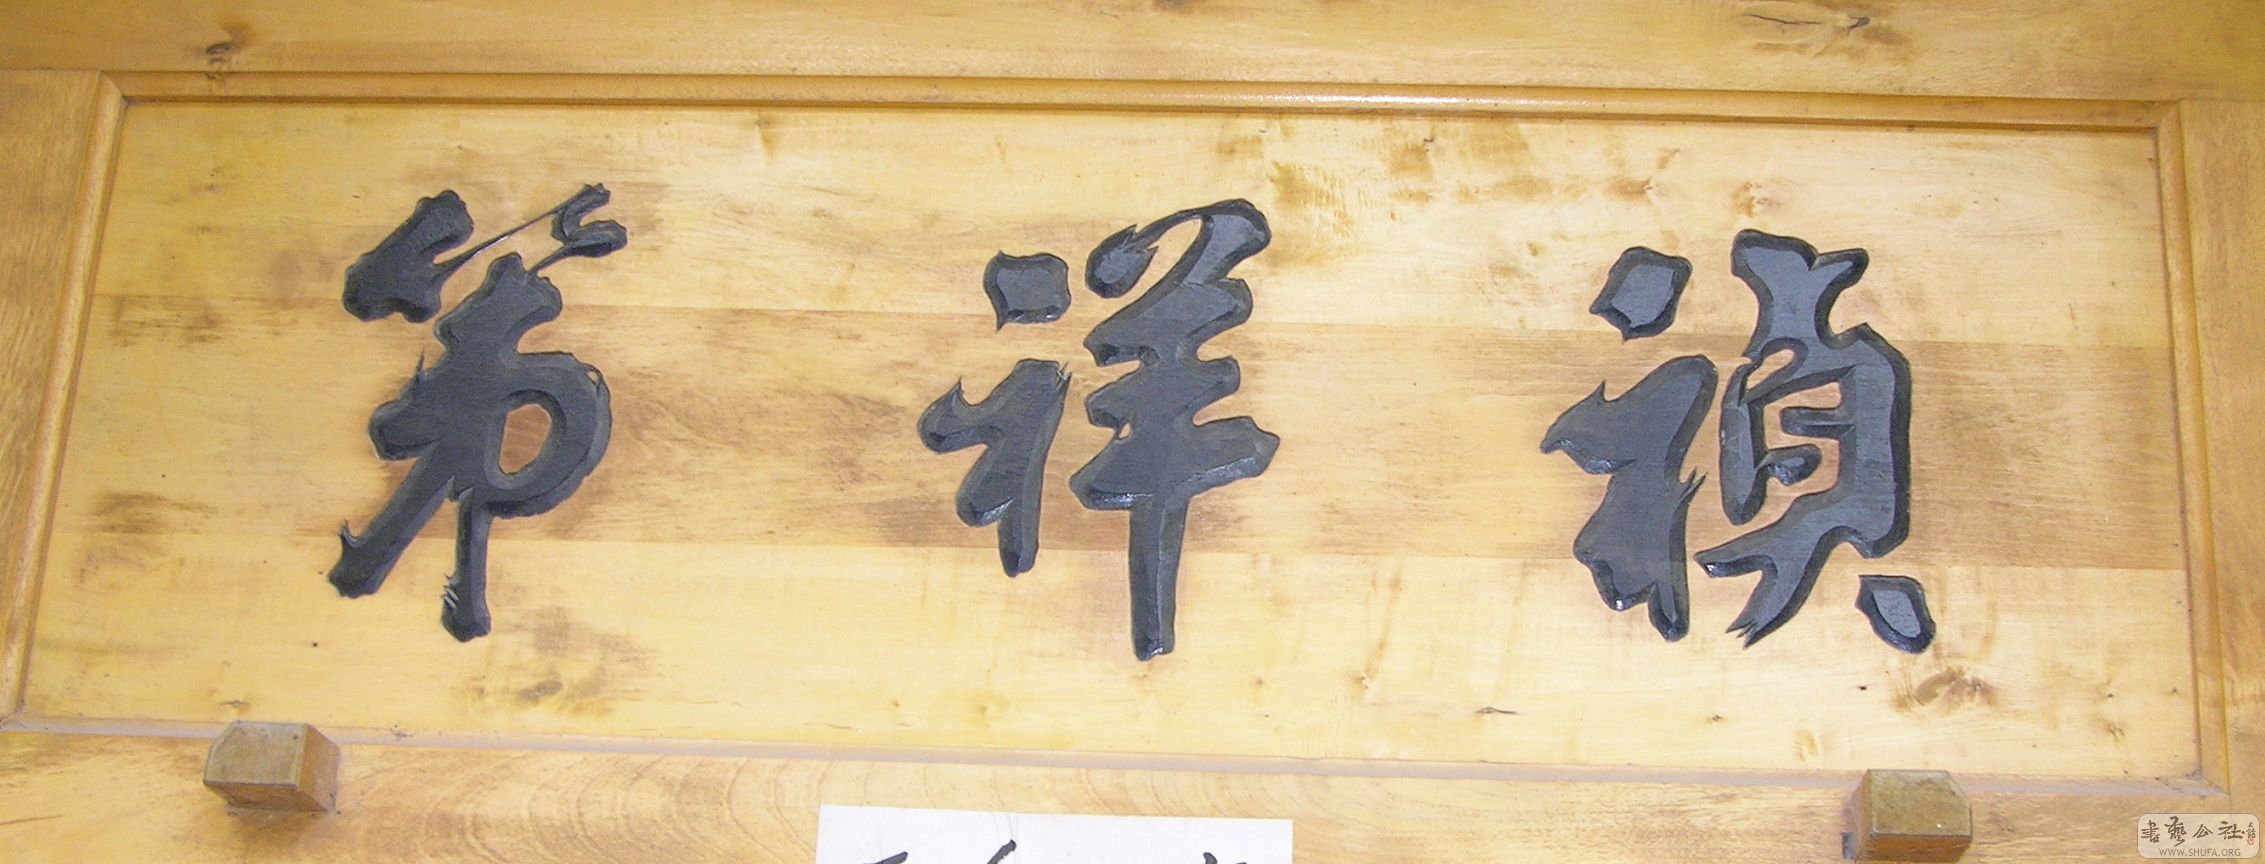 禎祥第
書藝公社
WWW.SHUFA.ORG